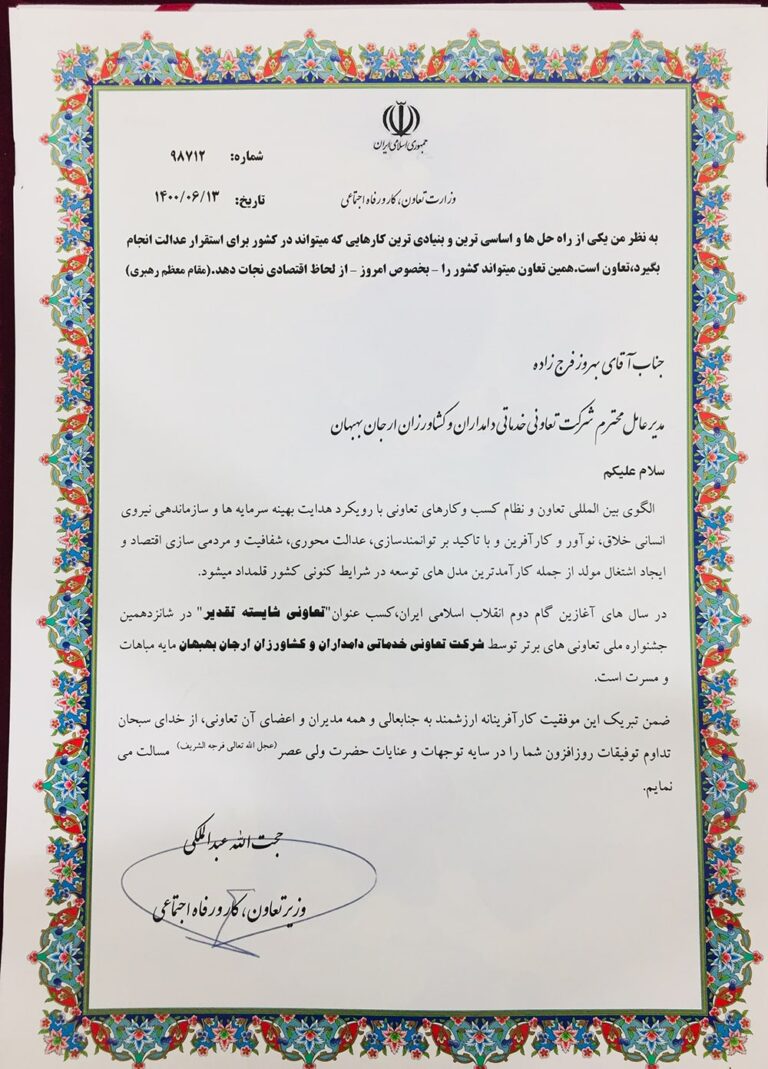 جمهوری اسلامی ایران
شماره: ۹۸۷۱۲
وزارت تعاون، کار و رفاه اجتماعی
تاریخ: ۱۴۰۰/۰۶/۱۳
به نظر من یکی از راه حل ها و اساسی ترین و بنیادی ترین کارهایی که میتواند در کشور برای استقرار عدالت انجام
بگیرد،تعاون است.همین تعاون میتواند کشور را – بخصوص امروز – از لحاظ اقتصادی نجات دهد.(مقام معظم رهبری)
جناب آقای بهروز فرج زاده
مدیرعامل محترم شرکت تعاونی خدماتی دامداران و کشاورزان ارجان بهبهان
سلام علیکم
الگوی بین المللی تعاون و نظام کسب وکارهای تعاونی با رویکرد هدایت بهینه سرمایه ها و سازماندهی نیروی
انسانی خلاق، نوآور و کارآفرین و با تاکید بر توانمندسازی، عدالت محوری، شفافیت و مردمی سازی اقتصاد و
ایجاد اشتغال مولد از جمله کارآمدترین مدل های توسعه در شرایط کنونی کشور قلمداد میشود.
در سال های آغازین گام دوم انقلاب اسلامی ایران،کسب عنوان"تعاونی شایسته تقدیر" در شانزدهمین
جشنواره ملی تعاونی های برتر توسط شرکت تعاونی خدماتی دامداران و کشاورزان ارجان بهبهان مایه مباهات
و مسرت است.
ضمن تبریک این موفقیت کارآفرینانه ارزشمند به جنابعالی و همه مدیران و اعضای آن تعاونی، از خدای سبحان
تداوم توفیقات روزافزون شما را در سایه توجهات و عنایات حضرت ولی عصر(عجل الله تعالی فرجه الشریف) مسالت می
نمایم.
حجت الله عبدالملکی
وزیر تعاون، کار و رفاه اجتماعی